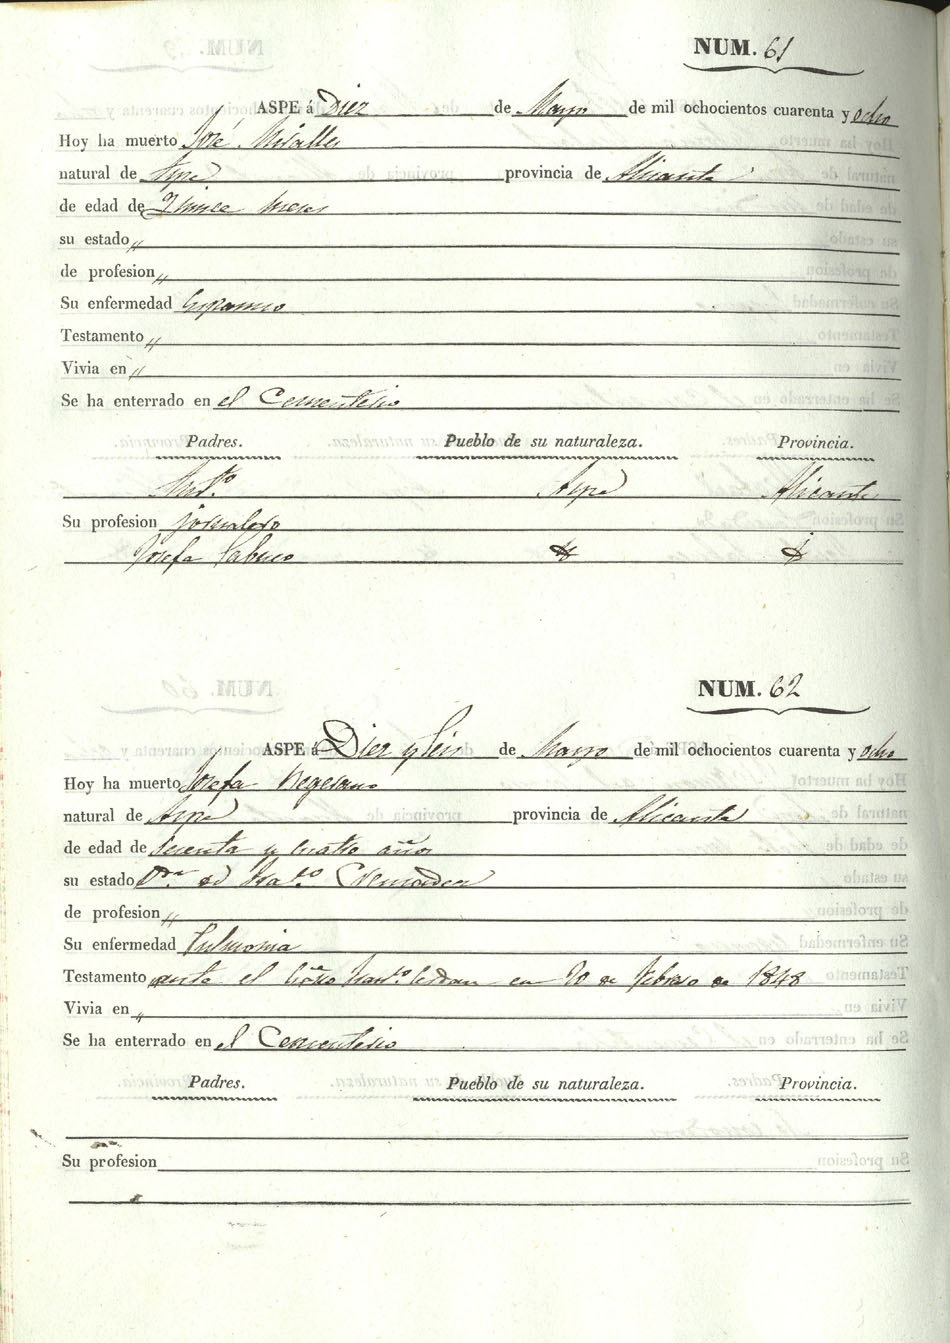 NUM. 61
ASPE á Diez de Mayo de mil ochocientos cuarenta y ocho
Hoy ha muerto José Miralles
natural de Aspe provincia de Alicante
de edad de Quince meses
su estado „
de profesion „
Su enfermedad
Testamento „
Vivia en „
Se ha enterrado en el Cementerio
Padres. Pueblo de su naturaleza. Provincia.
Ant.º Aspe Alicante
Su profesion jornalero
Josefa
NUM. 62
ASPE á Diez y seis de Mayo de mil ochocientos cuarenta y ocho
Hoy ha muerto Josefa
natural de Aspe provincia de Alicante
de edad de y cuatro años
su estado
de profesion „
Su enfermedad Pulmonia
Testamento ante el en 20 de Febrero de 1848
Vivia en „
Se ha enterrado en el Cementerio
Padres. Pueblo de su naturaleza. Provincia.
Su profesion